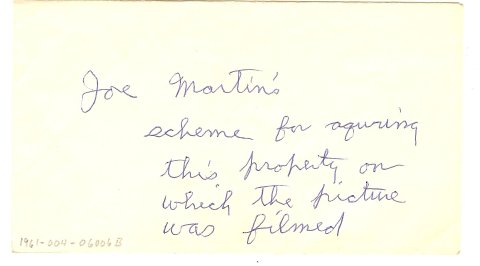 Joe Martin's
scheme for aquring
this property on
which the picture
was filmed
1961-004-06006B